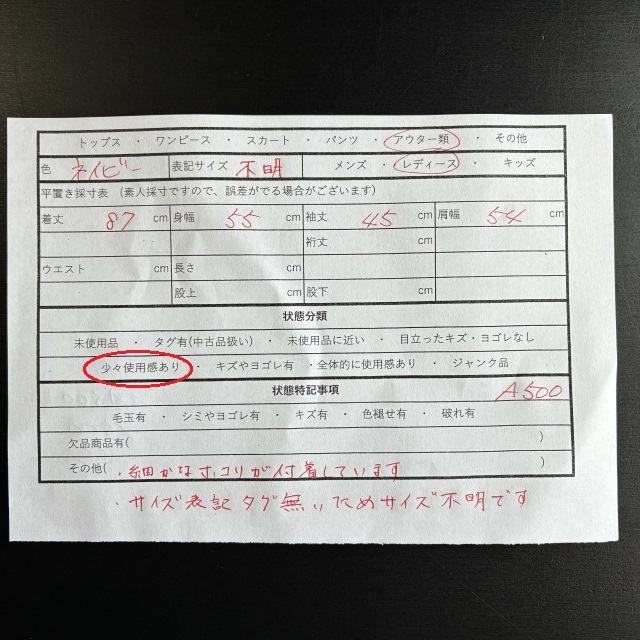 トップス ・ ワンピース ・ スカート ・ パンツ ・ アウター類 ・ その他
色 ネイビー 表記サイズ 不明 メンズ ・ レディース ・ キッズ
平置き採寸表 (素人採寸ですので、誤差がでる場合がございます)
着丈 87 cm 身幅 55 cm 袖丈 45 cm 肩幅 54 cm
裄丈 cm
ウエスト cm 長さ cm
股上 cm 股下 cm
状態分類
未使用品 ・ タグ有(中古品扱い) ・ 未使用品に近い ・ 目立ったキズ・ヨゴレなし
少々使用感あり ・ キズやヨゴレ有 ・全体的に使用感あり ・ ジャンク品
状態特記事項 A500
毛玉有 ・ シミやヨゴレ有 ・ キズ有 ・ 色褪せ有 ・ 破れ有
欠品商品有( )
その他( ・細かなホコリが付着しています )
・サイズ表記タグ無いためサイズ不明です